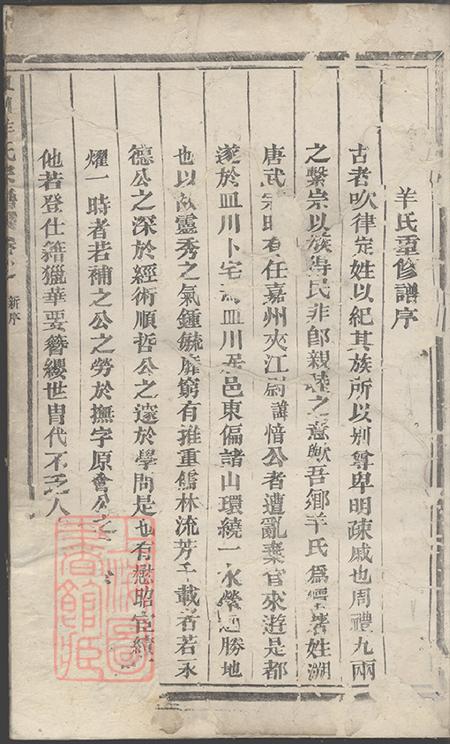 羊氏重修譜序
古者吹律定姓以紀其族所以別尊卑明疎戚也周禮九兩
之繫宗以族得民非卽親遠之意歟吾鄉羊氏爲著姓溯
唐武宗時有任嘉州夾江尉諱愔公者遭亂棄官來遊是都
遂於血川卜宅血川居邑東偏諸山環繞一水縈迴勝地
也以故靈秀之氣鍾毓靡窮有推重儒林流芳千載者若永
德公之深於經術順哲公之邃於學問是也有懋昭官績
耀一時者若補之公之勞於撫字原會公之
他若登仕籍獵華要簪纓世胄代不乏人
氏 新序
上海圖書館藏